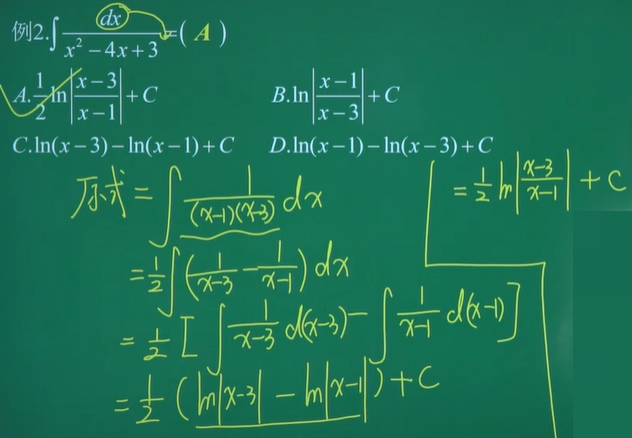 例2.∫ dx/(x² − 4x + 3) = ( A )
A. 1/2 ln|(x−3)/(x−1)| + C B. ln|(x−1)/(x−3)| + C
C. ln(x−3) − ln(x−1) + C D. ln(x−1) − ln(x−3) + C
原式 = ∫ 1/((x−1)(x−3)) dx
= 1/2 ∫ (1/(x−3) − 1/(x−1)) dx
= 1/2 [ ∫ 1/(x−3) d(x−3) − ∫ 1/(x−1) d(x−1) ]
= 1/2 ( ln|x−3| − ln|x−1| ) + C
= 1/2 ln|(x−3)/(x−1)| + C